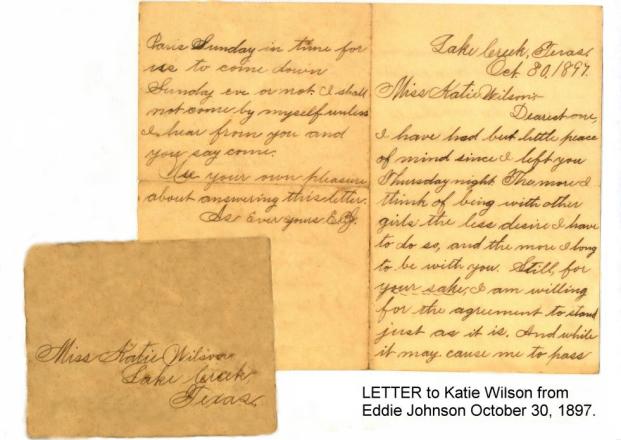 Paris Sunday in time for
us to come down
Sunday eve or not. I shall
not come by myself unless
I hear from you and
you say come.
Use your own pleasure
about answering this letter.
As Ever yours E.J.
Lake Creek, Texas,
Oct. 30, 1897.
Miss Katie Wilson
Dearest one,
I have had but little peace
of mind since I left you
Thursday night The more I
think of being with other
girls the less desire I have
to do so, and the more I long
to be with you. Still, for
your sake, I am willing
for the agreement to stand
just as it is. And while
it may cause me to pass
Miss Katie Wilson
Lake Creek,
Texas.
LETTER to Katie Wilson from
Eddie Johnson October 30, 1897.